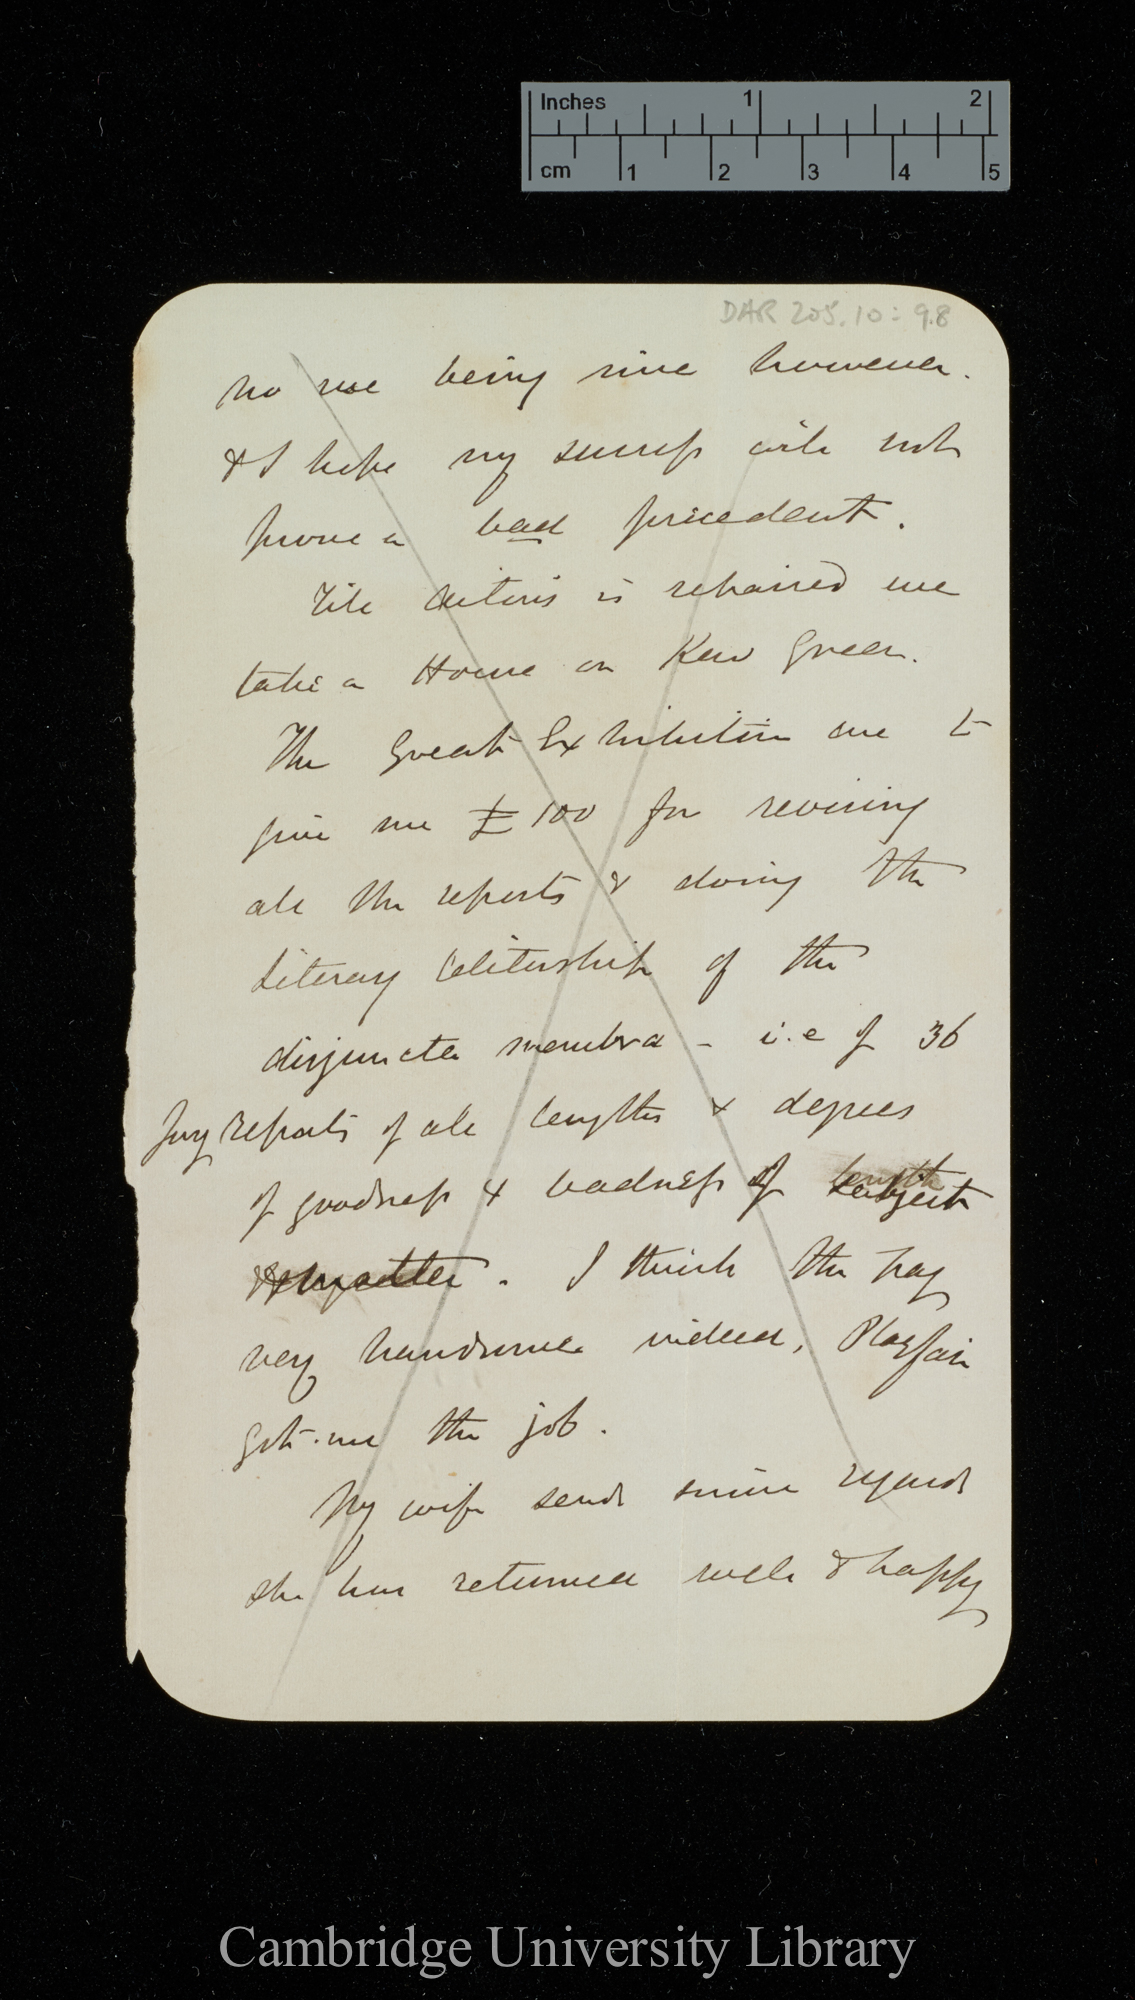 Inches 1 2
cm 1 2 3 4 5
DAR 205.10: 98
no use being nice however.
& I hope my success will not
prove a bad precedent.
Till is repaired we
take a House on Kew Green.
The Great Exhibition are to
give me £100 for revising
all the reports & doing the
Literary Editorship of the
disjuncta membra – i.e of 36
Jury Reports of all lengths & degrees
of goodness & badness of subject
& matter. I think the pay
very handsome indeed, Playfair
got me the job.
My wife sends regards
she has returned well & happy
Cambridge University Library